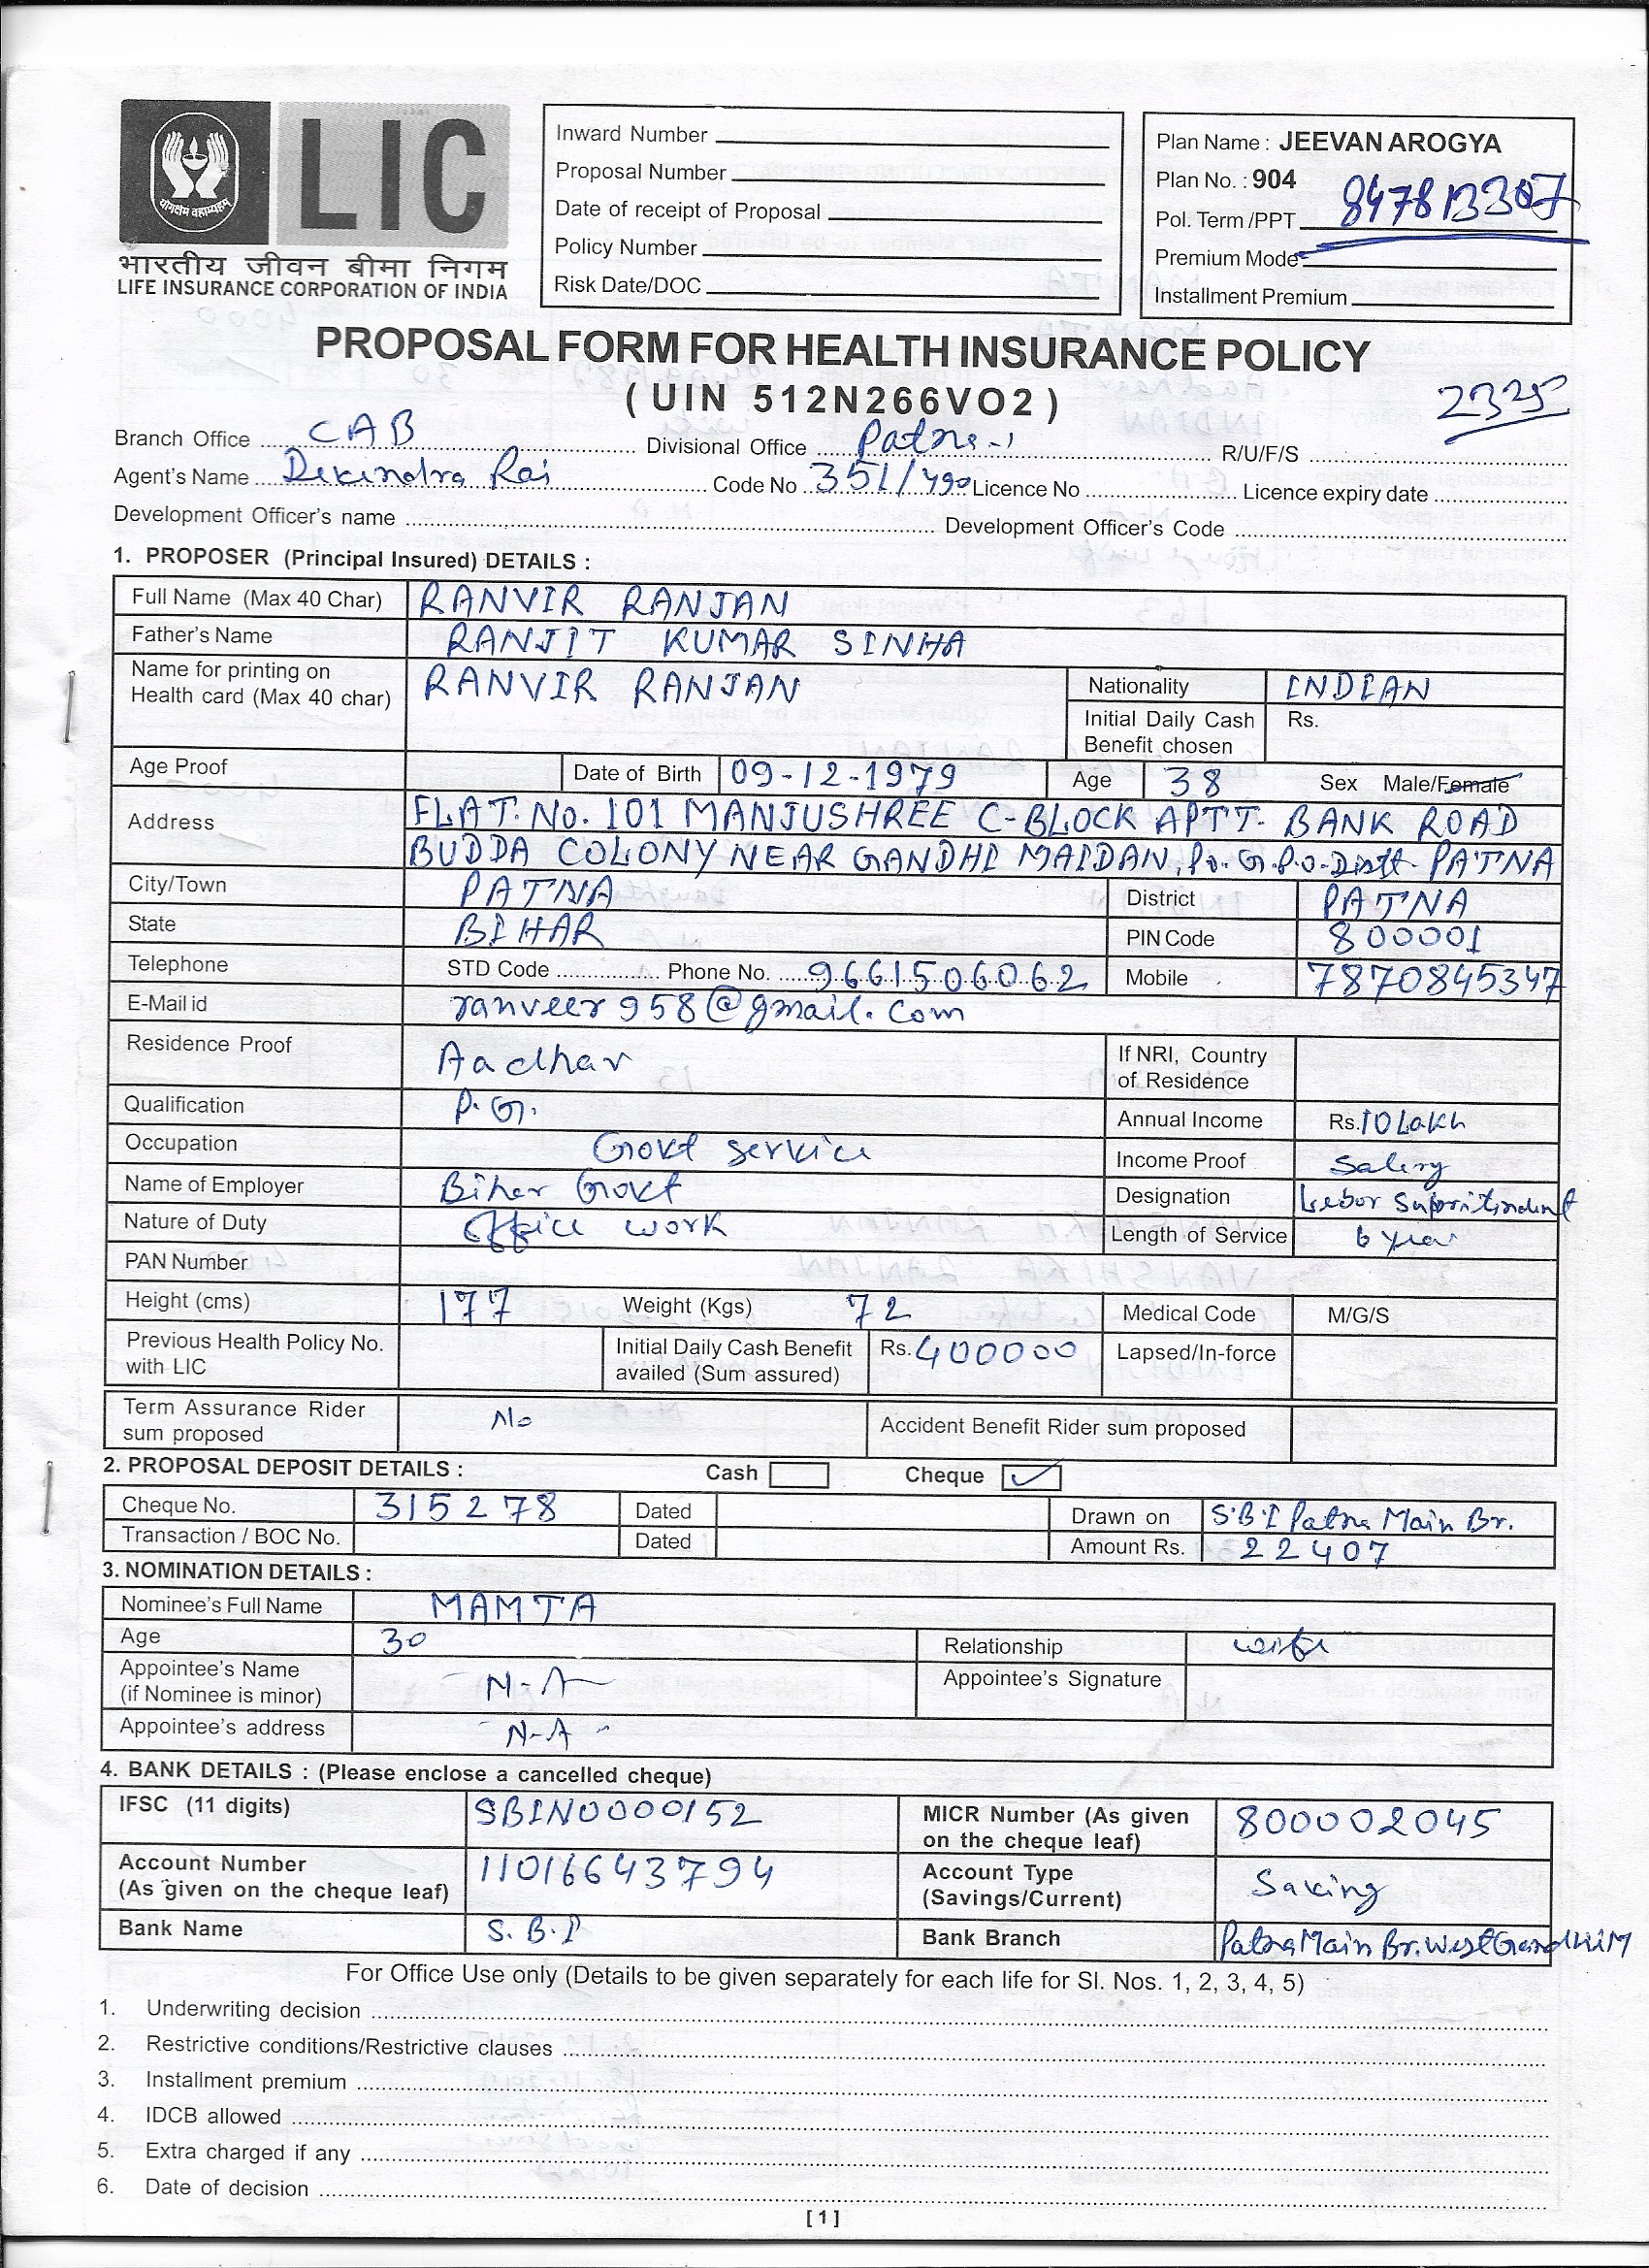 LIC
योगक्षेमं वहाम्यहम्
भारतीय जीवन बीमा निगम
LIFE INSURANCE CORPORATION OF INDIA
Inward Number
Proposal Number
Date of receipt of Proposal
Policy Number
Risk Date/DOC
Plan Name : JEEVAN AROGYA
Plan No. : 904
Pol. Term /PPT 847813307
Premium Mode
Installment Premium
PROPOSAL FORM FOR HEALTH INSURANCE POLICY
( UIN 512N266VO2 )
2325
Branch Office CAB Divisional Office Patna-1 R/U/F/S
Agent's Name Devendra Rai Code No 351/490 Licence No Licence expiry date
Development Officer's name Development Officer's Code
1. PROPOSER (Principal Insured) DETAILS :
Full Name (Max 40 Char) RANVIR RANJAN
Father's Name RANJIT KUMAR SINHA
Name for printing on Health card (Max 40 char) RANVIR RANJAN
Nationality INDIAN
Initial Daily Cash Benefit chosen Rs.
Age Proof Date of Birth 09-12-1979 Age 38 Sex Male/Female
Address FLAT. No. 101 MANJUSHREE C-BLOCK APTT. BANK ROAD
BUDDA COLONY NEAR GANDHI MAIDAN, Po. G.P.O. Distt- PATNA
City/Town PATNA District PATNA
State BIHAR PIN Code 800001
Telephone STD Code Phone No. 9661506062 Mobile 7870845347
E-Mail id ranveer958@gmail.com
Residence Proof Aadhar If NRI, Country of Residence
Qualification P.G. Annual Income Rs. 10 Lakh
Occupation Govt service Income Proof Salary
Name of Employer Bihar Govt Designation Lebor Supritindent
Nature of Duty office work Length of Service 6 year
PAN Number
Height (cms) 177 Weight (Kgs) 72 Medical Code M/G/S
Previous Health Policy No. with LIC Initial Daily Cash Benefit availed (Sum assured) Rs. 400000 Lapsed/In-force
Term Assurance Rider sum proposed No Accident Benefit Rider sum proposed
2. PROPOSAL DEPOSIT DETAILS : Cash Cheque ✓
Cheque No. 315278 Dated Drawn on S.B.I Patna Main Br.
Transaction / BOC No. Dated Amount Rs. 22407
3. NOMINATION DETAILS :
Nominee's Full Name MAMTA
Age 30 Relationship wife
Appointee's Name (if Nominee is minor) N-A Appointee's Signature
Appointee's address N-A
4. BANK DETAILS : (Please enclose a cancelled cheque)
IFSC (11 digits) SBIN0000152 MICR Number (As given on the cheque leaf) 800002045
Account Number (As given on the cheque leaf) 11016643794 Account Type (Savings/Current) Saving
Bank Name S.B.I Bank Branch Patna Main Br. West Gandhi M
For Office Use only (Details to be given separately for each life for Sl. Nos. 1, 2, 3, 4, 5)
1. Underwriting decision
2. Restrictive conditions/Restrictive clauses
3. Installment premium
4. IDCB allowed
5. Extra charged if any
6. Date of decision
[ 1 ]